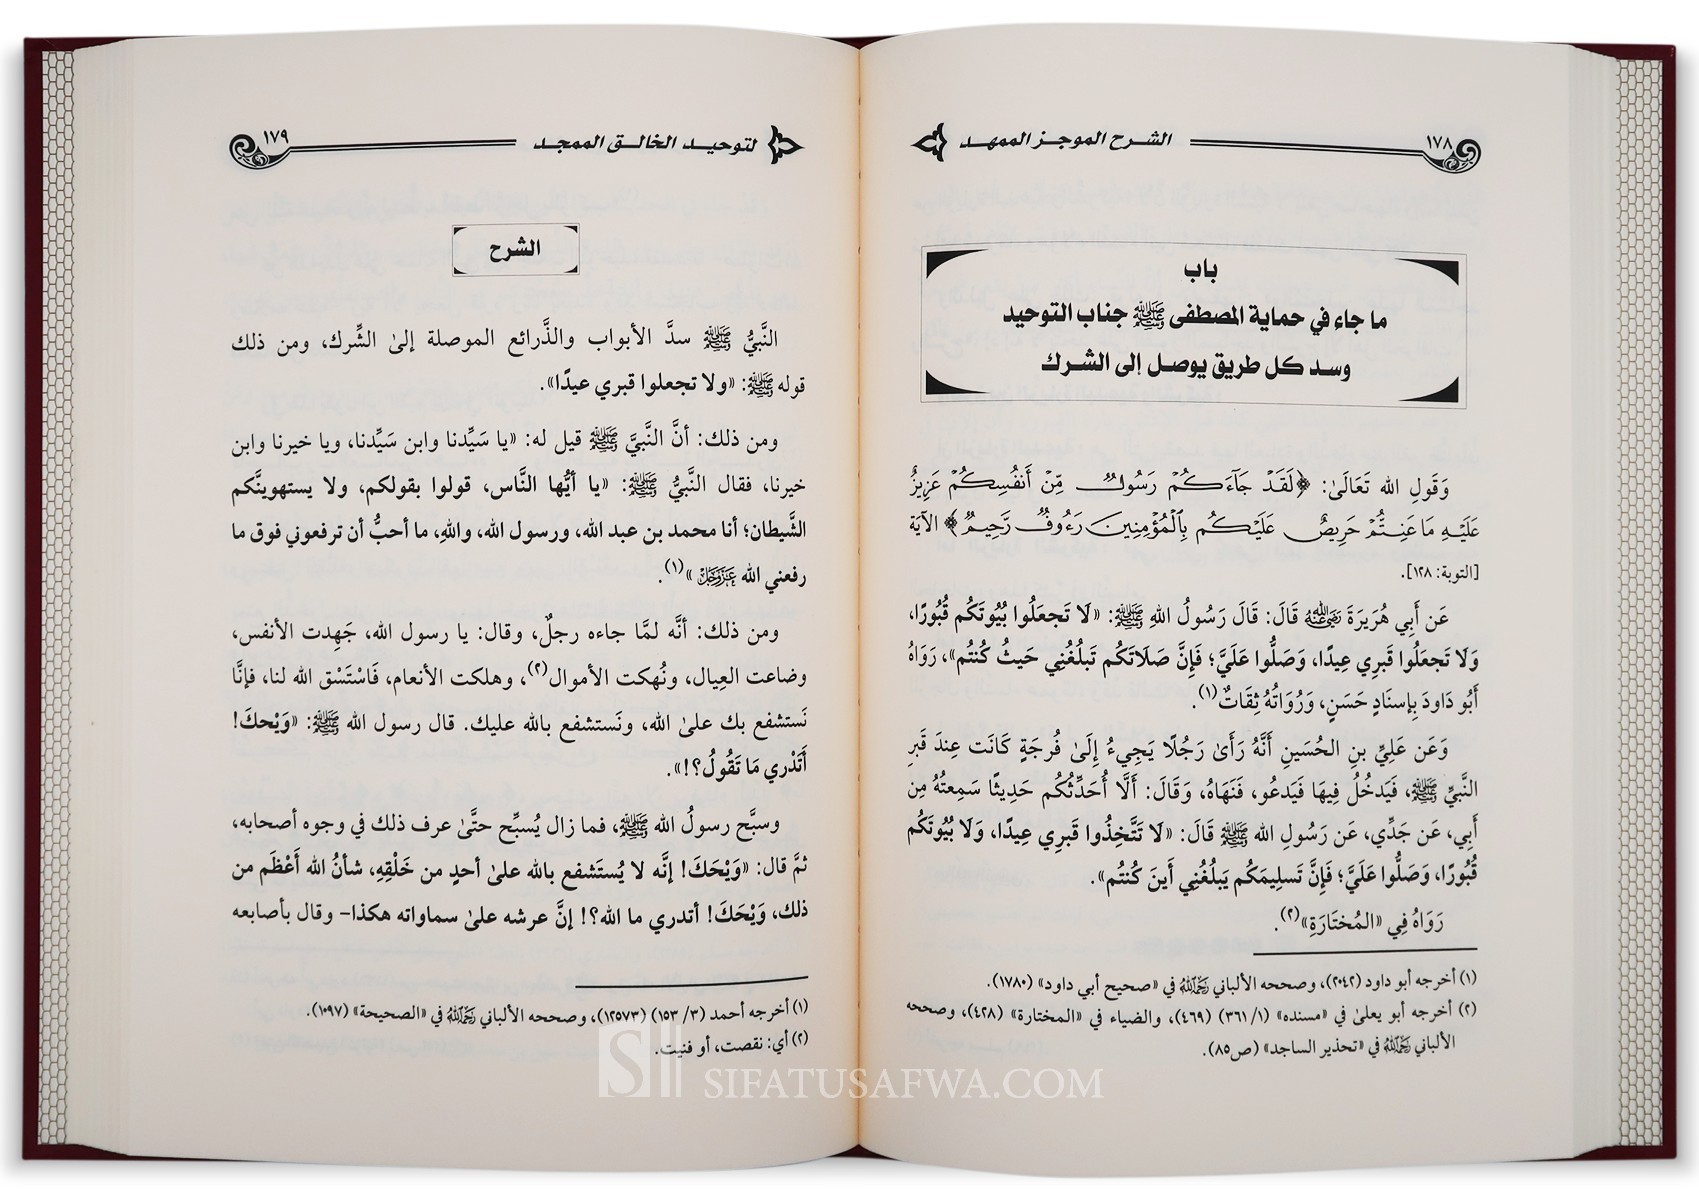 ١٧٨
الشرح الموجز الممهد
باب
ما جاء في حماية المصطفى ﷺ جناب التوحيد
وسد كل طريق يوصل إلى الشرك
وَقَولِ الله تَعَالَىٰ: ﴿لَقَدۡ جَآءَكُمۡ رَسُولٌ مِّنۡ أَنفُسِكُمۡ عَزِيزٌ
عَلَيۡهِ مَا عَنِتُّمۡ حَرِيصٌ عَلَيۡكُم بِٱلۡمُؤۡمِنِينَ رَءُوفٌ رَّحِيمٌ﴾ الآيَة
[التوبة: ١٢٨].
عَن أَبِي هُرَيرَةَ رَضِيَ اللَّهُ عَنْهُ قَالَ: قَالَ رَسُولُ اللهِ ﷺ: «لَا تَجعَلُوا بُيُوتَكُم قُبُورًا،
وَلَا تَجعَلُوا قَبرِي عِيدًا، وَصَلُّوا عَلَيَّ؛ فَإِنَّ صَلَاتَكُم تَبلُغُنِي حَيثُ كُنتُم»، رَوَاهُ
أَبُو دَاودَ بِإِسنَادٍ حَسَنٍ، وَرُوَاتُهُ ثِقَاتٌ(١).
وَعَن عَلِيِّ بنِ الحُسَينِ أَنَّهُ رَأَىٰ رَجُلًا يَجِيءُ إِلَىٰ فُرجَةٍ كَانَت عِندَ قَبرِ
النَّبِيِّ ﷺ، فَيَدخُلُ فِيهَا فَيَدعُو، فَنَهَاهُ، وَقَالَ: أَلَّا أُحَدِّثُكُم حَدِيثًا سَمِعتُهُ مِن
أَبِي، عَن جَدِّي، عَن رَسُولِ الله ﷺ قَالَ: «لَا تَتَّخِذُوا قَبرِي عِيدًا، وَلَا بُيُوتَكُم
قُبُورًا، وَصَلُّوا عَلَيَّ؛ فَإِنَّ تَسلِيمَكُم يَبلُغُنِي أَينَ كُنتُم».
رَوَاهُ فِي «المُختَارَةِ»(٢).
(١) أخرجه أبو داود (٢٠٤٢)، وصححه الألباني رَحِمَهُ اللَّهُ في «صحيح أبي داود» (١٧٨٠).
(٢) أخرجه أبو يعلى في «مسنده» (١/ ٣٦١) (٤٦٩)، والضياء في «المختارة» (٤٢٨)، وصححه
الألباني رَحِمَهُ اللَّهُ في «تحذير الساجد» (ص٨٥).
لتوحيد الخالق الممجد
١٧٩
الشرح
النَّبيُّ ﷺ سدَّ الأبواب والذَّرائع الموصلة إلىٰ الشِّرك، ومن ذلك
قوله ﷺ: «ولا تجعلوا قبري عيدًا».
ومن ذلك: أنَّ النَّبيَّ ﷺ قيل له: «يا سَيِّدنا وابن سَيِّدنا، ويا خيرنا وابن
خيرنا، فقال النَّبيُّ ﷺ: «يا أيُّها النَّاس، قولوا بقولكم، ولا يستهوينَّكم
الشَّيطان؛ أنا محمد بن عبد الله، ورسول الله، واللهِ، ما أحبُّ أن ترفعوني فوق ما
رفعني الله عَزَّوَجَلَّ»(١).
ومن ذلك: أنَّه لمَّا جاءه رجلٌ، وقال: يا رسول الله، جَهِدت الأنفس،
وضاعت العِيال، ونُهكت الأموال(٢)، وهلكت الأنعام، فَاسْتَسْق الله لنا، فإنَّا
نَستشفع بك علىٰ الله، ونَستشفع بالله عليك. قال رسول الله ﷺ: «وَيْحكَ!
أَتَدْري مَا تَقُولُ؟!».
وسبَّح رسولُ الله ﷺ، فما زال يُسبِّح حتَّىٰ عرف ذلك في وجوه أصحابه،
ثمَّ قال: «وَيْحَكَ! إنَّه لا يُستَشفع بالله علىٰ أحدٍ من خَلْقِهِ، شأنُ الله أَعْظَم من
ذلك، وَيْحَكَ! أتدري ما الله؟! إنَّ عرشه علىٰ سماواته هكذا- وقال بأصابعه
(١) أخرجه أحمد (٣/ ١٥٣) (١٢٥٧٣)، وصححه الألباني رَحِمَهُ اللَّهُ في «الصحيحة» (١٠٩٧).
(٢) أي: نقصت، أو فنيت.
SIFATUSAFWA.COM